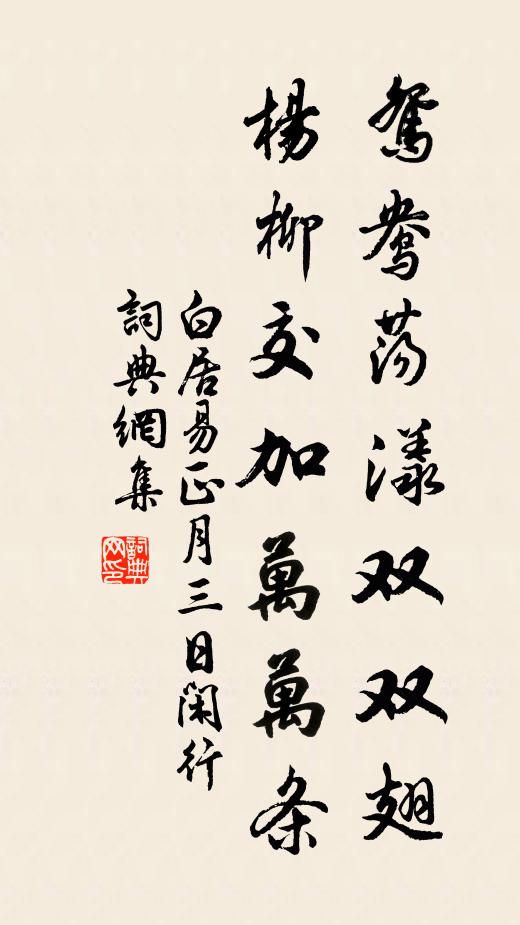 鴛鴦荡漾双双翅
楊柳交加萬萬条
白居易正月三日閑行
詞典網集
詞典网印